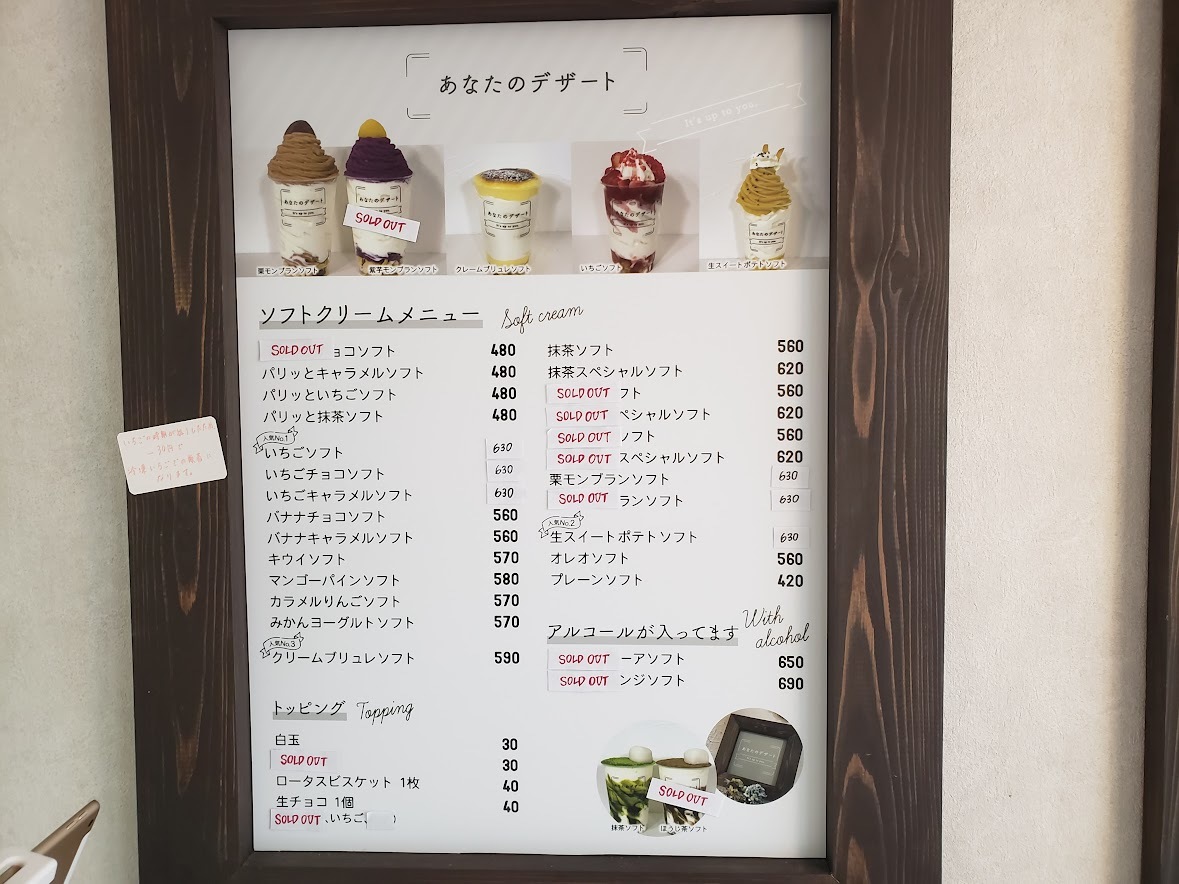 あなたのデザート
It's up to you.
あなたのデザート
It's up to you.
あなたのデザート
SOLD OUT
あなたのデザート
あなたのデザート
あなたのデザート
栗モンブランソフト
紫芋モンブランソフト
クレームブリュレソフト
いちごソフト
生スイートポテトソフト
ソフトクリームメニュー Soft cream
SOLD OUT ョコソフト 480
パリッとキャラメルソフト 480
パリッといちごソフト 480
パリッと抹茶ソフト 480
人気No.1
いちごソフト 630
いちごチョコソフト 630
いちごキャラメルソフト 630
バナナチョコソフト 560
バナナキャラメルソフト 560
キウイソフト 570
マンゴーパインソフト 580
カラメルりんごソフト 570
みかんヨーグルトソフト 570
人気No.3
クリームブリュレソフト 590
トッピング Topping
白玉 30
SOLD OUT 30
ロータスビスケット 1枚 40
生チョコ 1個 40
SOLD OUT 、いちご
抹茶ソフト 560
抹茶スペシャルソフト 620
SOLD OUT フト 560
SOLD OUT ペシャルソフト 620
SOLD OUT ソフト 560
SOLD OUT スペシャルソフト 620
栗モンブランソフト 630
SOLD OUT ランソフト 630
人気No.2
生スイートポテトソフト 630
オレオソフト 560
プレーンソフト 420
アルコールが入ってます With alcohol
SOLD OUT ーアソフト 650
SOLD OUT ンジソフト 690
あなたのデザート
SOLD OUT
抹茶ソフト
ほうじ茶ソフト